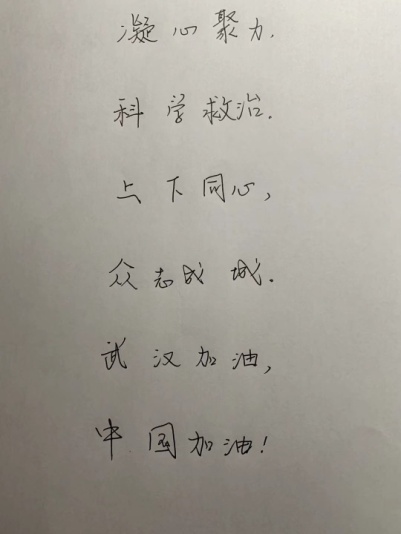 凝心聚力.
科学救治.
上下同心,
众志成城.
武汉加油,
中国加油!